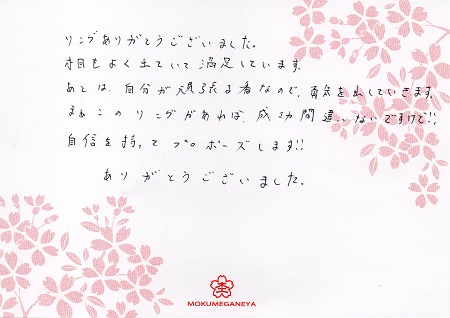 リングありがとうございました。
木目もよく出ていて満足しています。
あとは、自分が頑張る番なので、勇気を出していきます。
まぁこのリングがあれば、成功間違いないですけど!!
自信を持ってプロポーズします!!
ありがとうございました。
杢
MOKUMEGANEYA